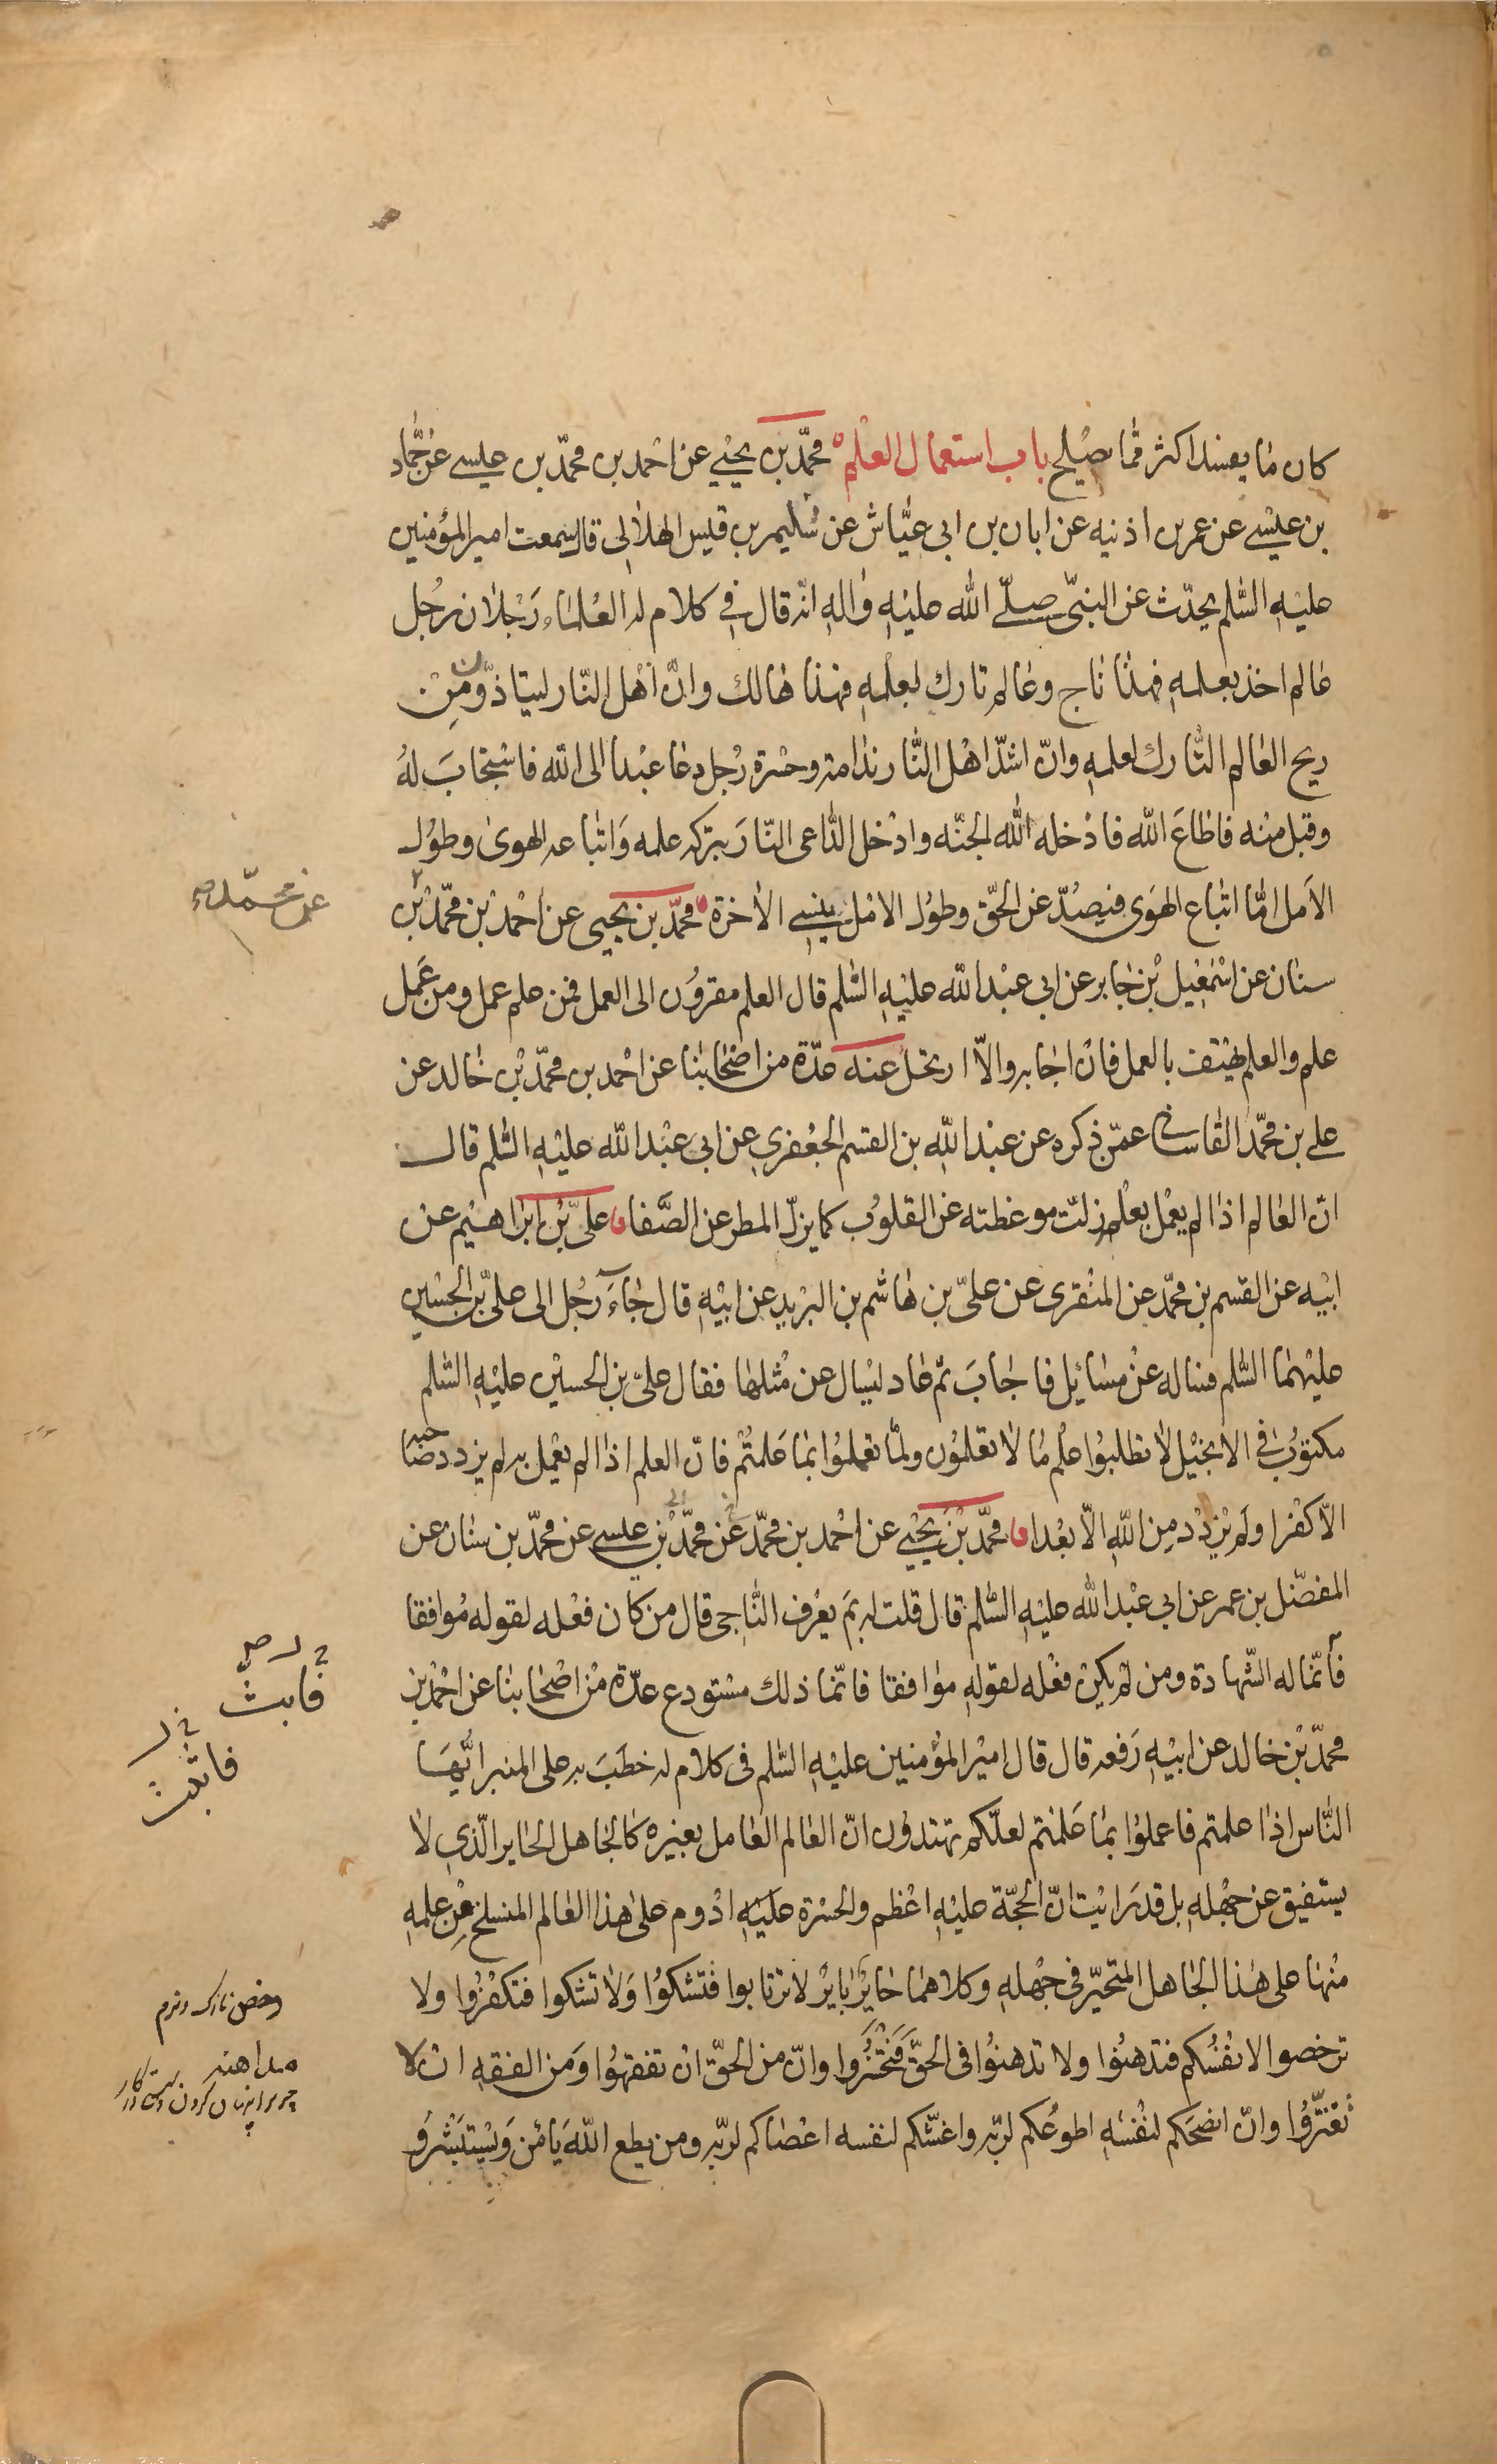 كان ما يفسد اكثر ممّا يصلح باب استعمال العلم محمّد بن يحيى عن احمد بن محمّد بن عيسى عن حمّاد
بن عيسى عن عمر بن اذنيه عن ابان بن ابى عيّاش عن سُليم بن قيس الهلالى قال سمعت امير المؤمنين
عليه السّلم يحدّث عن النبىّ صلّى الله عليه واله انّه قال فى كلام له العلماء رَجلان رجُل
عالم اخذ بعلمه فهذا ناج وعالم تارك لعلمه فهذا هالك وانّ اهل النّار ليتاذّون من
ريح العالم التّارك لعلمه وانّ اشدّ اهل النّار ندامة وحسرة رجُل دعا عبدا الى الله فاستجابَ لهُ
وقبل منه فاطاعَ الله فادخله الله الجنّه وادخل الدّاعى النّارَ بتركه علمه وَاتباعه الهوى وطول
الاَمل امّا اتباع الهَوى فيصُدّ عن الحقّ وطوُل الامل ينسى الاخرة محمّد بن يحيى عن احمد بن محمّد بن
سنان عن اسمعيل بن جابر عن ابى عبد الله عليه السّلم قال العلم مقروُن الى العمل فمن علم عمل ومن عَمل
علم والعلم يهتف بالعمل فان اجابه والّا ارتحل عنه عدّة من اصحابنا عن احمد بن محمّد بن خالد عن
على بن محمّد القاسانى عمّن ذكره عن عبد الله بن القسم الجعفرى عن ابى عبد الله عليه السّلم قال
انّ العالم اذا لم يعمل بعلمه زلّت موعظته عن القلوُب كما يزلّ المطر عن الصَّفا علىّ بن ابراهيم عن
ابيه عن القسم بن محمّد عن المنقرى عن علىّ بن هاشم بن البريد عن ابيه قال جاءَ رجُل الى علىّ بن الحسين
عليهما السّلم فساله عن مسائل فاجابَ ثمّ عاد ليسال عن مثلها فقال علىّ بن الحسين عليه السّلم
مكتوُب فى الانجيل لا تطلبوا علم ما لا تعلمون ولمّا تعملوُا بما عَلمتُم فانّ العلم اذا لم يعمل به لم يزدد صاحبه
الّا كفرا ولم يزدد من الله الّا بعدا محمّد بن يحيى عن احمد بن محمّد عن محمّد بن عيسى عن محمّد بن سنان عن
المفضّل بن عمر عن ابى عبد الله عليه السّلم قال قلت له بمَ يعرف النّاجى قال من كان فعله لقوله مُوافقا
فانّما له الشّهادة ومن لم يكن فعله لقوله موافقا فانّما ذلك مستودع عدّة من اصحابنا عن احمد بن
محمّد بن خالد عن ابيه رَفعه قال قال امير المؤمنين عليه السّلم فى كلام له خطَبَ به على المنبر ايّهَا
النّاس اذا علمتم فاعملوُا بما عَلمتم لعلّكم تهتدوُن انّ العالم العامل بغيره كالجاهل الحاير الّذى لا
يستفيق عن جهله بل قد رَايت انّ الحجّة عليه اعظم والحسرة عَليه ادوم على هذا العالم المنسلخ من علمه
منها على هذا الجاهل المتحيّر فى جهله وكلاهما حايرٌ بايرٌ لا ترتابوا فتشكوُا وَلا تشكوا فتكفروُا ولا
ترخصوا لانفُسُكم فتدهنوُا ولا تدهنوُا فى الحقّ فَتخسروا وانّ من الحقّ ان تفقهوُا وَمن الفقه ان لا
تغترّوُا وانّ انصحَكم لنفسه اطوعُكم لربّه واغشّكم لنفسه اعصاكم لربّه ومن يطع الله يَامن وَيستبشر وَ
عن محمّد
فابث
فاثبت
مداهنه